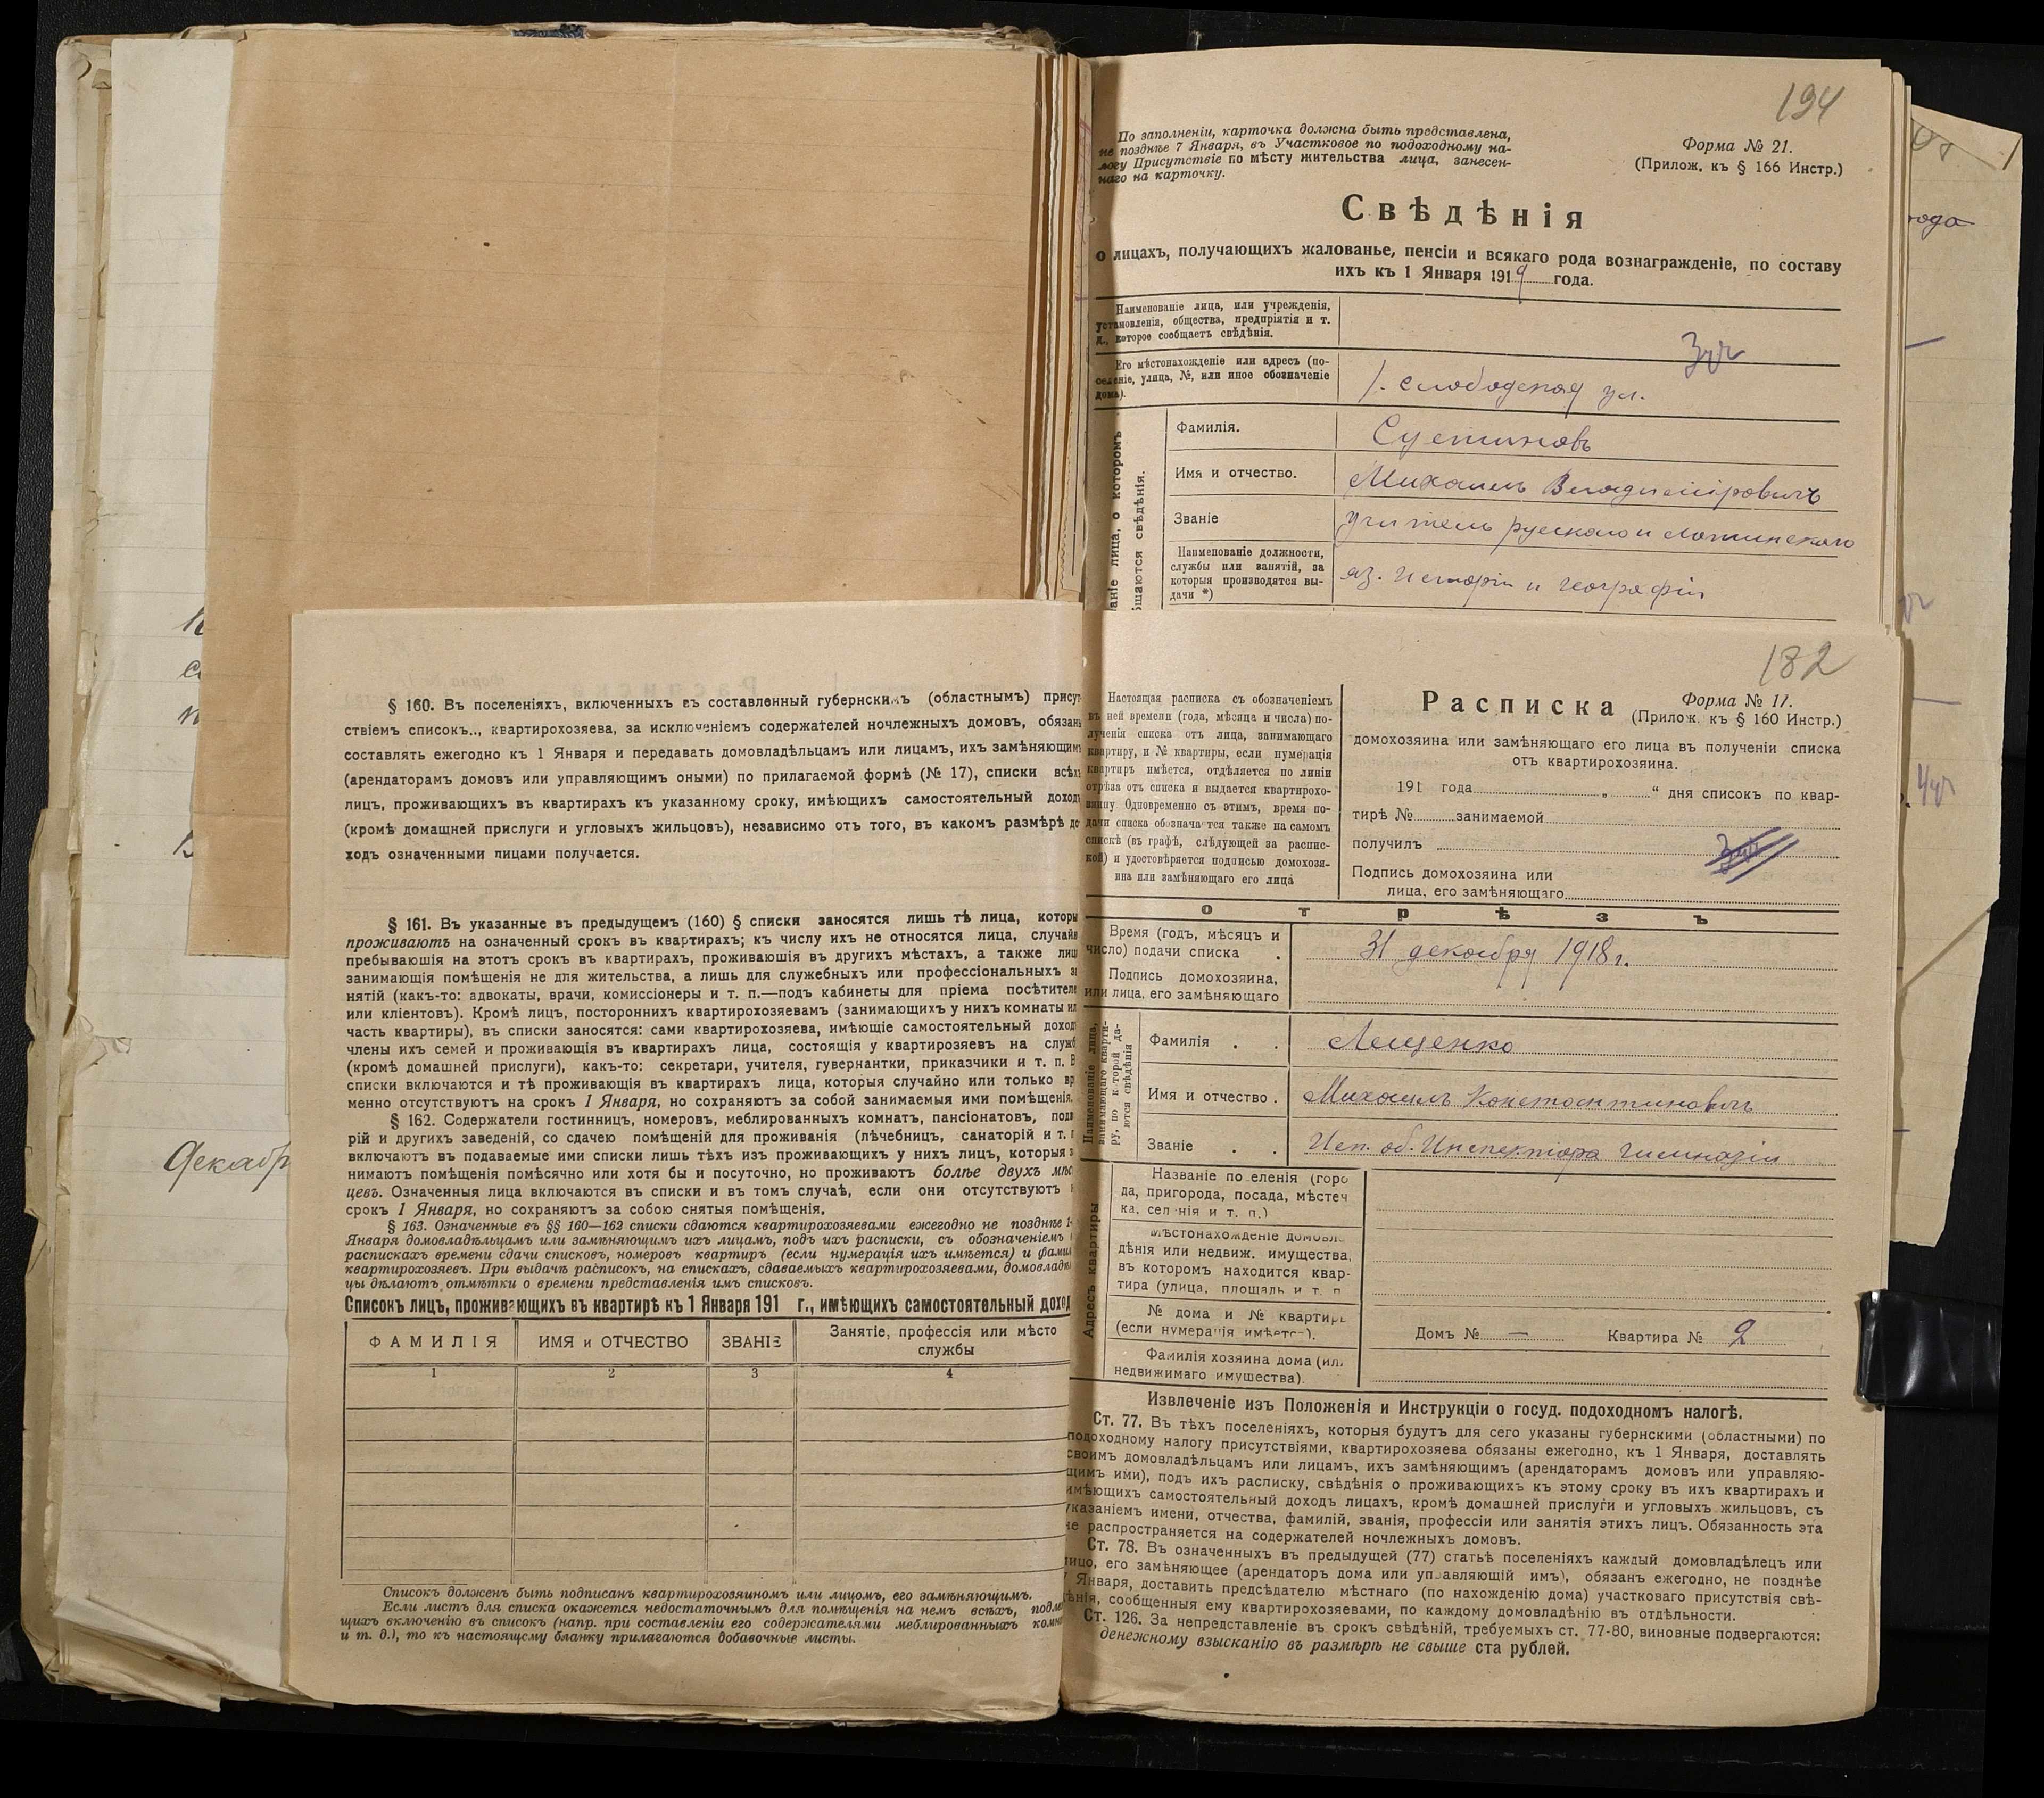 194
По заполненіи, карточка должна быть представлена,
не позднѣе 7 Января, въ Участковое по подоходному на-
логу Присутствіе по мѣсту жительства лица, занесен-
наго на карточку.
Форма № 21.
(Прилож. къ § 166 Инстр.)
Свѣдѣнія
о лицахъ, получающихъ жалованье, пенсіи и всякаго рода вознагражденіе, по составу
ихъ къ 1 Января 1919 года.
Наименованіе лица, или учрежденія,
установленія, общества, предпріятія и т.
д., которое сообщаетъ свѣдѣнія.
Его мѣстонахожденіе или адресъ (по-
селеніе, улица, №, или иное обозначеніе
дома).
слободская ул.
Фамилія.
Суетиновъ
Имя и отчество.
Михаилъ Владиміровичъ
Званіе
учитель русскаго и латинскаго
Наименованіе должности,
службы или занятій, за
которыя производятся вы-
дачи *)
яз. исторіи и географіи
§ 160. Въ поселеніяхъ, включенныхъ въ составленный губернскимъ (областнымъ) присут
ствіемъ списокъ.., квартирохозяева, за исключеніемъ содержателей ночлежныхъ домовъ, обязан
составлять ежегодно къ 1 Января и передавать домовладѣльцамъ или лицамъ, ихъ замѣняющим
(арендаторамъ домовъ или управляющимъ оными) по прилагаемой формѣ (№ 17), списки всѣх
лицъ, проживающихъ въ квартирахъ къ указанному сроку, имѣющихъ самостоятельный доход
(кромѣ домашней прислуги и угловыхъ жильцовъ), независимо отъ того, въ какомъ размѣрѣ до
ходъ означенными лицами получается.
§ 161. Въ указанные въ предыдущемъ (160) § списки заносятся лишь тѣ лица, которы
проживаютъ на означенный срокъ въ квартирахъ; къ числу ихъ не относятся лица, случайн
пребываюшія на этотъ срокъ въ квартирахъ, проживаюшія въ другихъ мѣстахъ, а также лиц
занимающія помѣщенія не для жительства, а лишь для служебныхъ или профессіональныхъ за
нятій (какъ-то: адвокаты, врачи, комиссіонеры и т. п.—подъ кабинеты для пріема посѣтителе
или кліентовъ). Кромѣ лицъ, постороннихъ квартирохозяевамъ (занимающихъ у нихъ комнаты ил
часть квартиры), въ списки заносятся: сами квартирохозяева, имѣющіе самостоятельный доход
члены ихъ семей и проживающія въ квартирахъ лица, состоящія у квартирозяевъ на служб
(кромѣ домашней прислуги), какъ-то: секретари, учителя, гувернантки, приказчики и т. п. В
списки включаются и тѣ проживающія въ квартирахъ лица, которыя случайно или только вр
менно отсутствуютъ на срокъ 1 Января, но сохраняютъ за собой занимаемыя ими помѣщенія.
§ 162. Содержатели гостинницъ, номеровъ, меблированныхъ комнатъ, пансіонатовъ, подв
рій и другихъ заведеній, со сдачею помѣщеній для проживанія (лѣчебницъ, санаторій и т. п
включаютъ въ подаваемые ими списки лишь тѣхъ изъ проживающихъ у нихъ лицъ, которыя з
нимаютъ помѣщенія помѣсячно или хотя бы и посуточно, но проживаютъ болѣе двухъ мѣс
цевъ. Означенныя лица включаются въ списки и въ томъ случаѣ, если они отсутствуютъ
срокъ 1 Января, но сохраняютъ за собою снятыя помѣщенія.
§ 163. Означенные въ §§ 160—162 списки сдаются квартирохозяевами ежегодно не позднѣе 1-
Января домовладѣльцамъ или замѣняющимъ ихъ лицамъ, подъ ихъ расписки, съ обозначеніемъ
распискахъ времени сдачи списковъ, номеровъ квартиръ (если нумерація ихъ имѣется) и фами
квартирохозяевъ. При выдачѣ расписокъ, на спискахъ, сдаваемыхъ квартирохозяевами, домовладѣ
цы дѣлаютъ отмѣтки о времени представленія имъ списковъ.
Списокъ лицъ, проживающихъ въ квартирѣ къ 1 Января 191 г., имѣющихъ самостоятельный доход
ФАМИЛІЯ ИМЯ и ОТЧЕСТВО ЗВАНІЕ Занятіе, профессія или мѣсто
службы
1 2 3 4
Списокъ долженъ быть подписанъ квартирохозяиномъ или лицомъ, его замѣняющимъ.
Если листъ для списка окажется недостаточнымъ для помѣщенія на немъ всѣхъ, подле
щихъ включенію въ списокъ (напр. при составленіи его содержателями меблированныхъ комна
и т. д.), то къ настоящему бланку прилагаются добавочные листы.
182
Настоящая расписка съ обозначеніемъ
въ ней времени (года, мѣсяца и числа) по-
лученія списка отъ лица, занимающаго
квартиру, и № квартиры, если нумерація
квартиръ имѣется, отдѣляется по линіи
отрѣза отъ списка и выдается квартирохо-
зяину. Одновременно съ этимъ, время по-
дачи списка обозначается также на самомъ
спискѣ (въ графѣ, слѣдующей за распис-
кой) и удостовѣряется подписью домохозя-
ина или замѣняющаго его лица
Расписка
Форма № 17.
(Прилож. къ § 160 Инстр.)
домохозяина или замѣняющаго его лица въ полученіи списка
отъ квартирохозяина.
191 года „ “ дня списокъ по квар-
тирѣ № занимаемой
получилъ
Подпись домохозяина или
лица, его замѣняющаго
отрѣзъ
Время (годъ, мѣсяцъ и
число) подачи списка
31 декабря 1918 г.
Подпись домохозяина,
или лица, его замѣняющаго
Наименованіе лица,
занимающаго кварти-
ру, по которой да-
ются свѣдѣнія
Фамилія
Лещенко
Имя и отчество
Михаилъ Константиновичъ
Званіе
Исп. об. Инспектора гимназіи
Адресъ квартиры
Названіе по еленія (горо
да, пригорода, посада, мѣстеч
ка, сел нія и т. п.)
Мѣстонахожденіе домовл
дѣнія или недвиж. имущества,
въ которомъ находится квар-
тира (улица, площадь и т. п
№ дома и № квартир
(если нумерація имѣется).
Домъ № — Квартира № 2
Фамилія хозяина дома (ил
недвижимаго имущества).
Извлеченіе изъ Положенія и Инструкціи о госуд. подоходномъ налогѣ.
Ст. 77. Въ тѣхъ поселеніяхъ, которыя будутъ для сего указаны губернскими (областными) по
подоходному налогу присутствіями, квартирохозяева обязаны ежегодно, къ 1 Января, доставлять
своимъ домовладѣльцамъ или лицамъ, ихъ замѣняющимъ (арендаторамъ домовъ или управляю-
щимъ ими), подъ ихъ расписку, свѣдѣнія о проживающихъ къ этому сроку въ ихъ квартирахъ и
имѣющихъ самостоятельный доходъ лицахъ, кромѣ домашней прислуги и угловыхъ жильцовъ, съ
указаніемъ имени, отчества, фамилій, званія, профессіи или занятія этихъ лицъ. Обязанность эта
не распространяется на содержателей ночлежныхъ домовъ.
Ст. 78. Въ означенныхъ въ предыдущей (77) статьѣ поселеніяхъ каждый домовладѣлецъ или
лицо, его замѣняющее (арендаторъ дома или управляющій имъ), обязанъ ежегодно, не позднѣе
7 Января, доставить предсѣдателю мѣстнаго (по нахожденію дома) участковаго присутствія свѣ-
дѣнія, сообщенныя ему квартирохозяевами, по каждому домовладѣнію въ отдѣльности.
Ст. 126. За непредставленіе въ срокъ свѣдѣній, требуемыхъ ст. 77-80, виновные подвергаются:
денежному взысканію въ размѣрѣ не свыше ста рублей.
Декабр